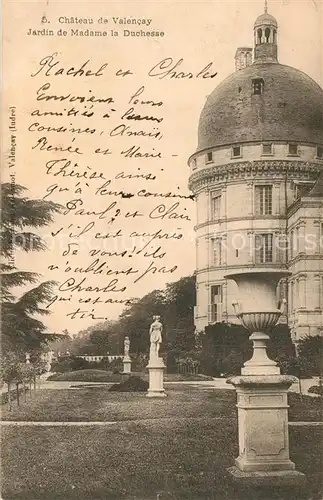 5. Château de Valençay
Jardin de Madame la Duchesse
Rachel et Charles
Envoient leurs
amitiés à leurs
cousines, Anaïs,
Renée et Marie-
Thérèse ainsi
qu'à leur cousin
Paul, et Clair
s'il est auprès
de vous. s'ils
n'oublient pas
Charles
qui est aux
tir.
Valençay (Indre)